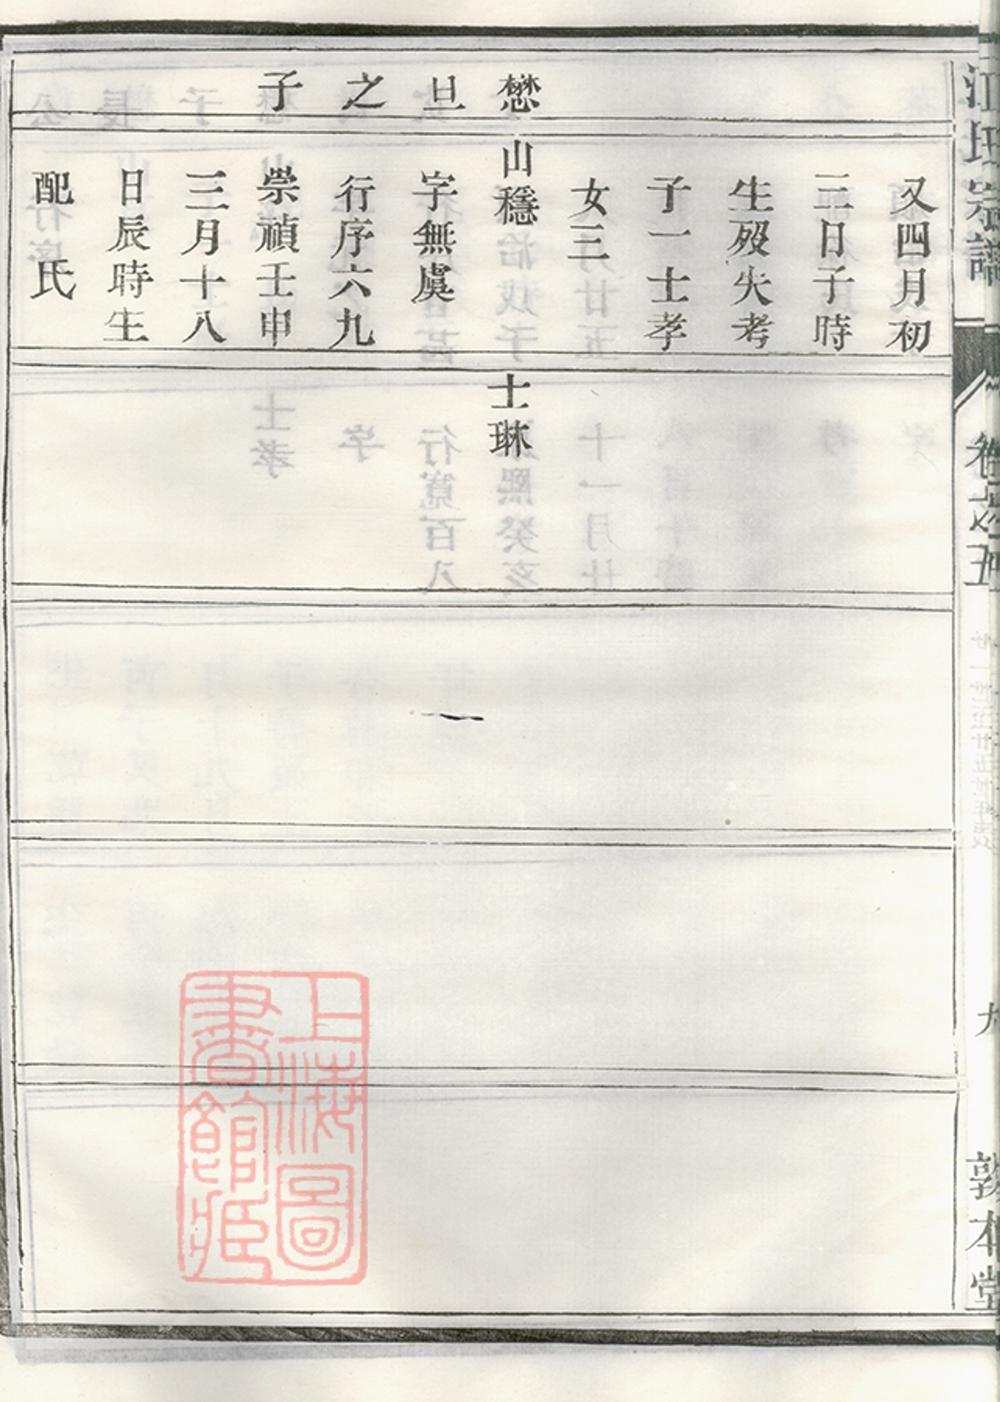 江氏宗譜
卷之五
九
敦本堂
又四月初
二日子時
生歿失考
子一士孝
女三
懋旦之子
山穩
字無虞
行序六九
崇禎壬申
三月十八
日辰時生
配氏
士琳
上海圖
書館藏